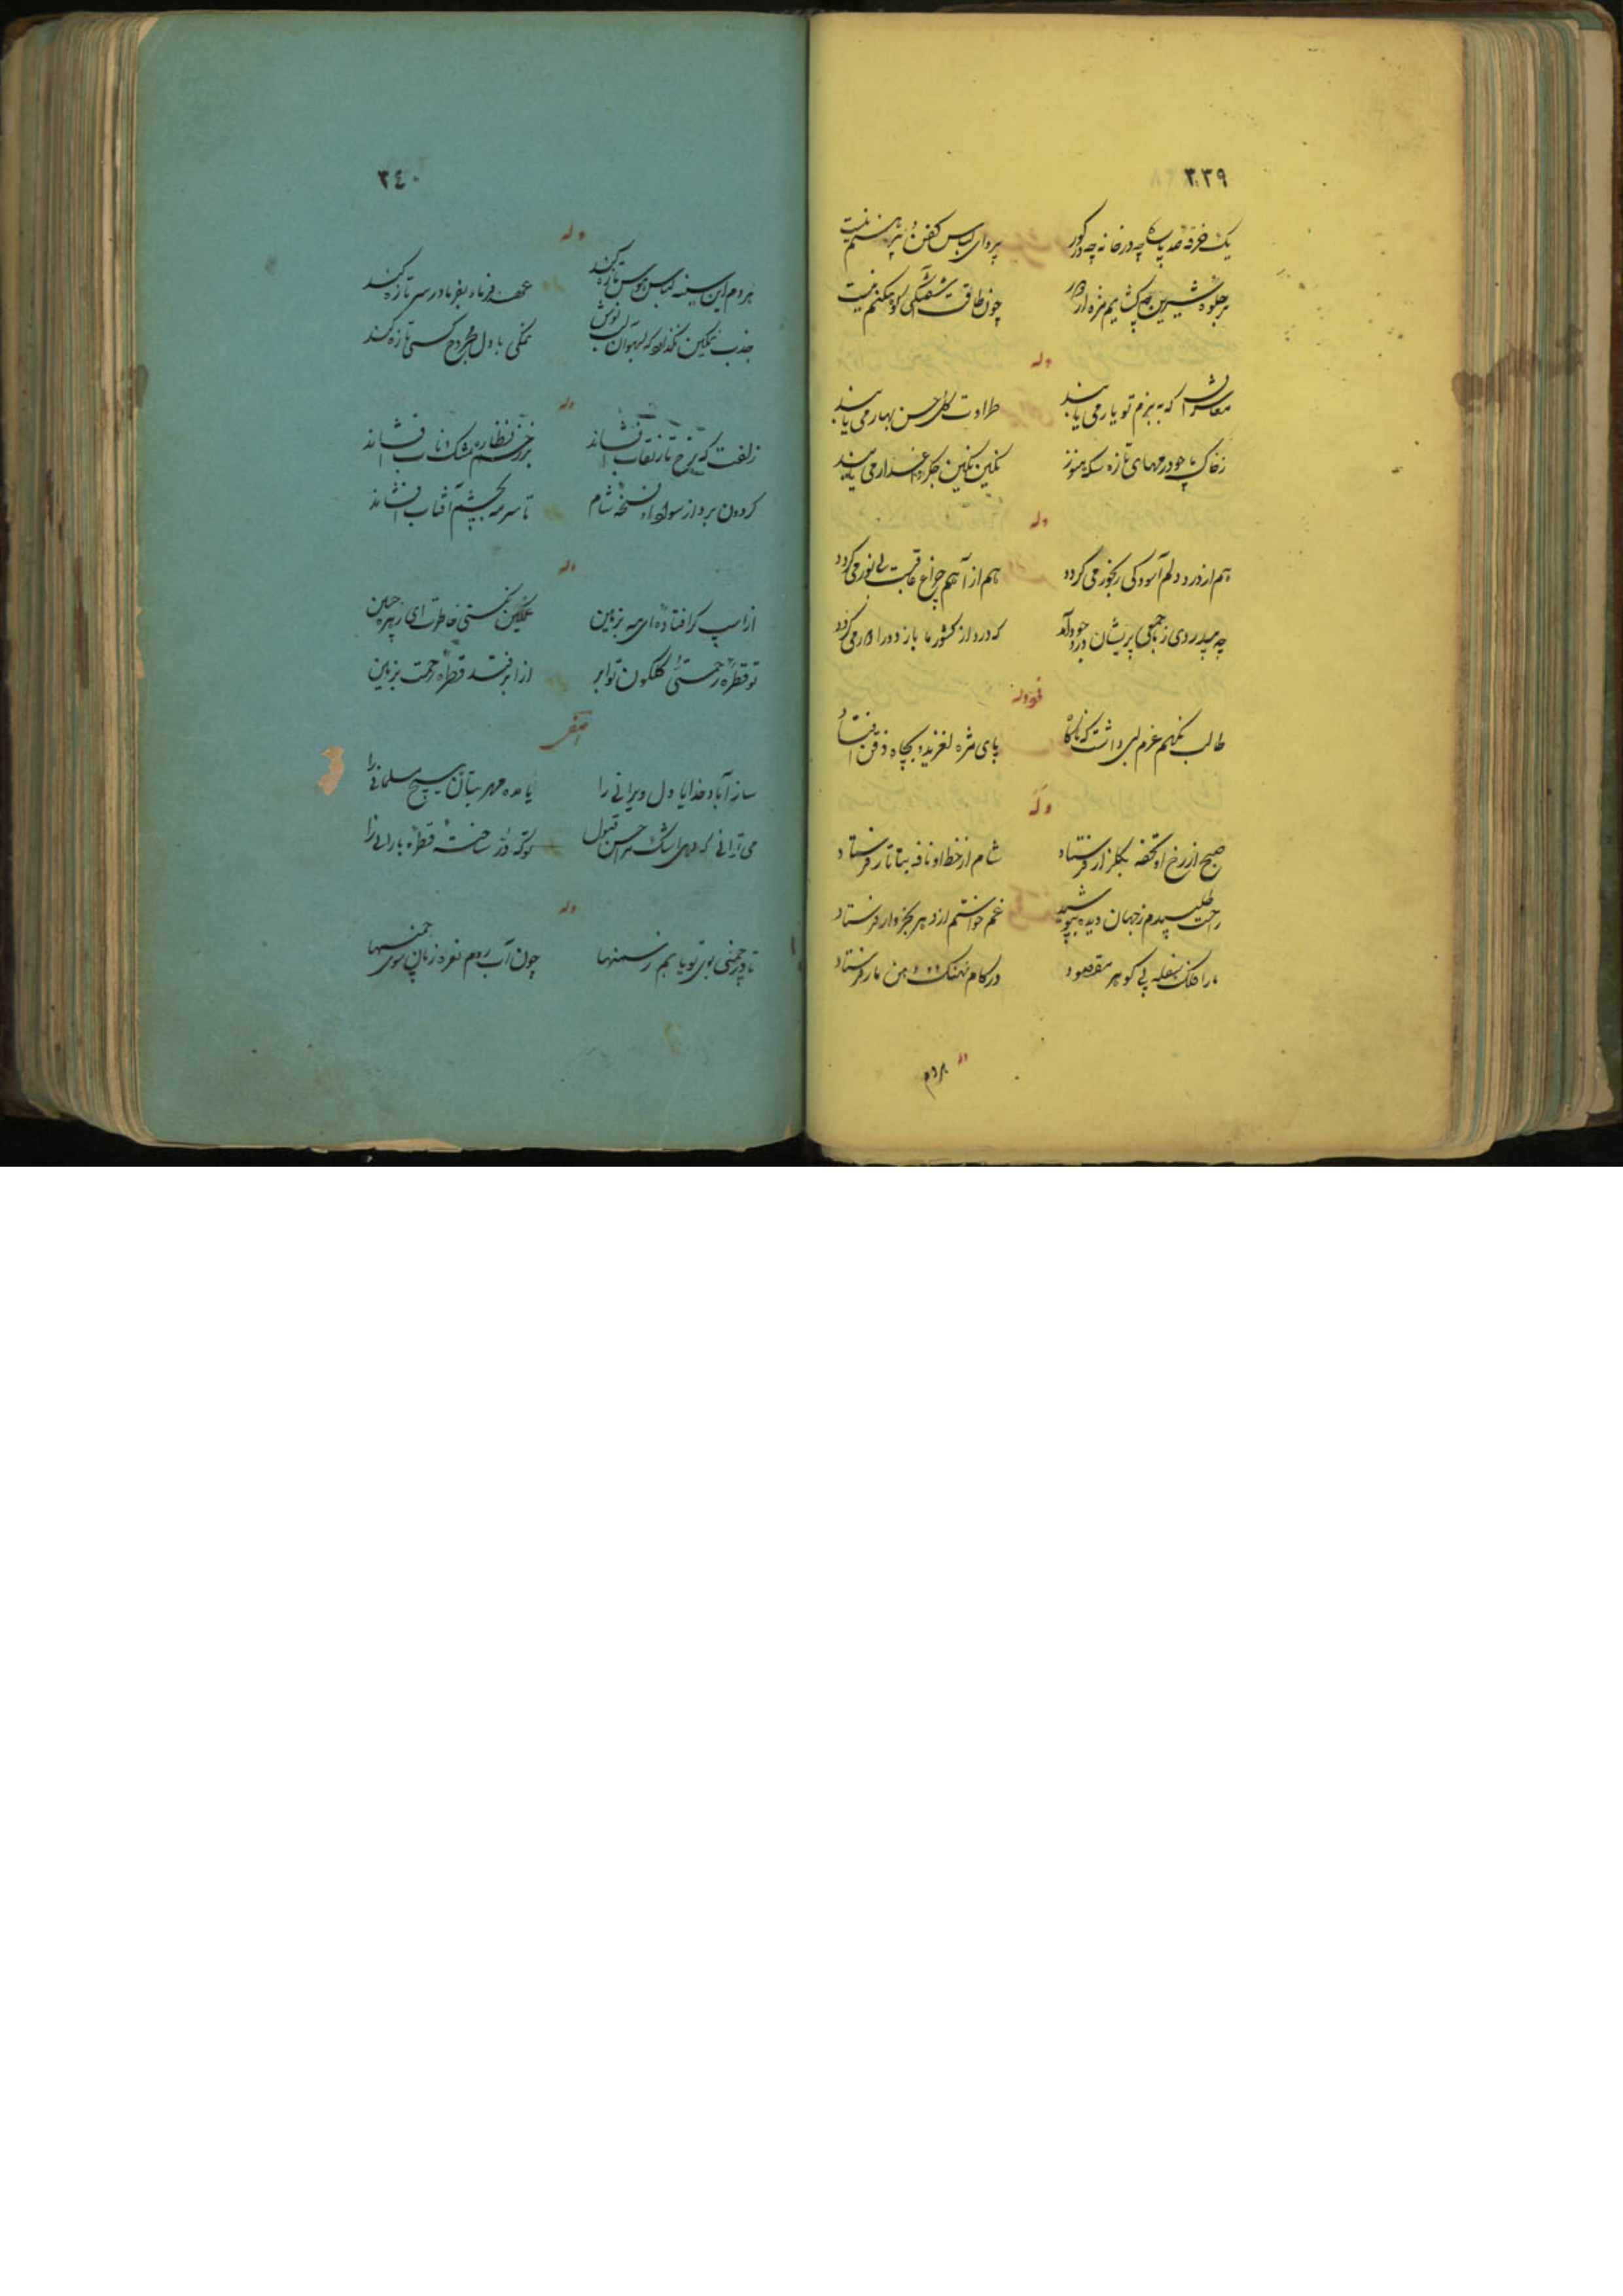 ۳۳۹
یک خرقه صد پاره چه در خانه چه در گور پروای لباس کفن و پیرهنم نیست
بر جلوه شیرین چه گشایم مژه از دور چون طاقت شفتگی کوهکنم نیست
وله
معاشران که به بزم تو یار می یابند طراوت گل حسن بهار می یابند
ز خاک ما چو درمهای تازه سکه هنوز نگین نگین جگر داغدار می یابند
وله
هم از درد دلم آسودگی رنجور می گردد هم از آهم چراغ عاقبت بی نور می گردد
چه بیدردی ز ما جمعی پریشان در وجود آمد که درد از کشور ما باز دور
وله
طالب نگهم عزم لبی داشت که ناگاه پای مژه لغزید و بچاه ذقن افتاد
وله
صبح از رخ او تحفه بگلزار فرستاد شام از خط او نافه بتاتار فرستاد
راحت طلبیدم ز جهان دیده بپوشید غم خواستم از دهر بخروار فرستاد
ما را فلک سفله پی گوهر مقصود در کام نهنگ و دهن مار فرستاد
وله
هردم
۳۴۰
وله
هردم این سینه لباس هوس تازه کند عهد فریاد بفریادرس تازه کند
جذب نمکین که لب نوش نمکی با دل مجروح کسی تازه کند
وله
زلفت که ز رخ تار نقاب افشاند بر زخم نظاره مشک ناب افشاند
گردون برد از سواد او نسخه شام تا سرمه بچشم آفتاب افشاند
وله
از اسپ گر افتاده ای مه بزمین غمگین نکنی خاطرت ای زهره جبین
تو قطره رحمتی و گلگون تو ابر از ابر فتد قطره رحمت بزمین
آصفی
ساز آباد خدایا دل ویرانی را یا مده مهر بتان هیچ مسلمانی را
می توانی که دهی اشک مرا حسن قبول تو که در ساخته قطره بارانی را
وله
تا در چمنی بوی تو یابم ز سمنها چون آب روم نعره زنان سوی چمنها